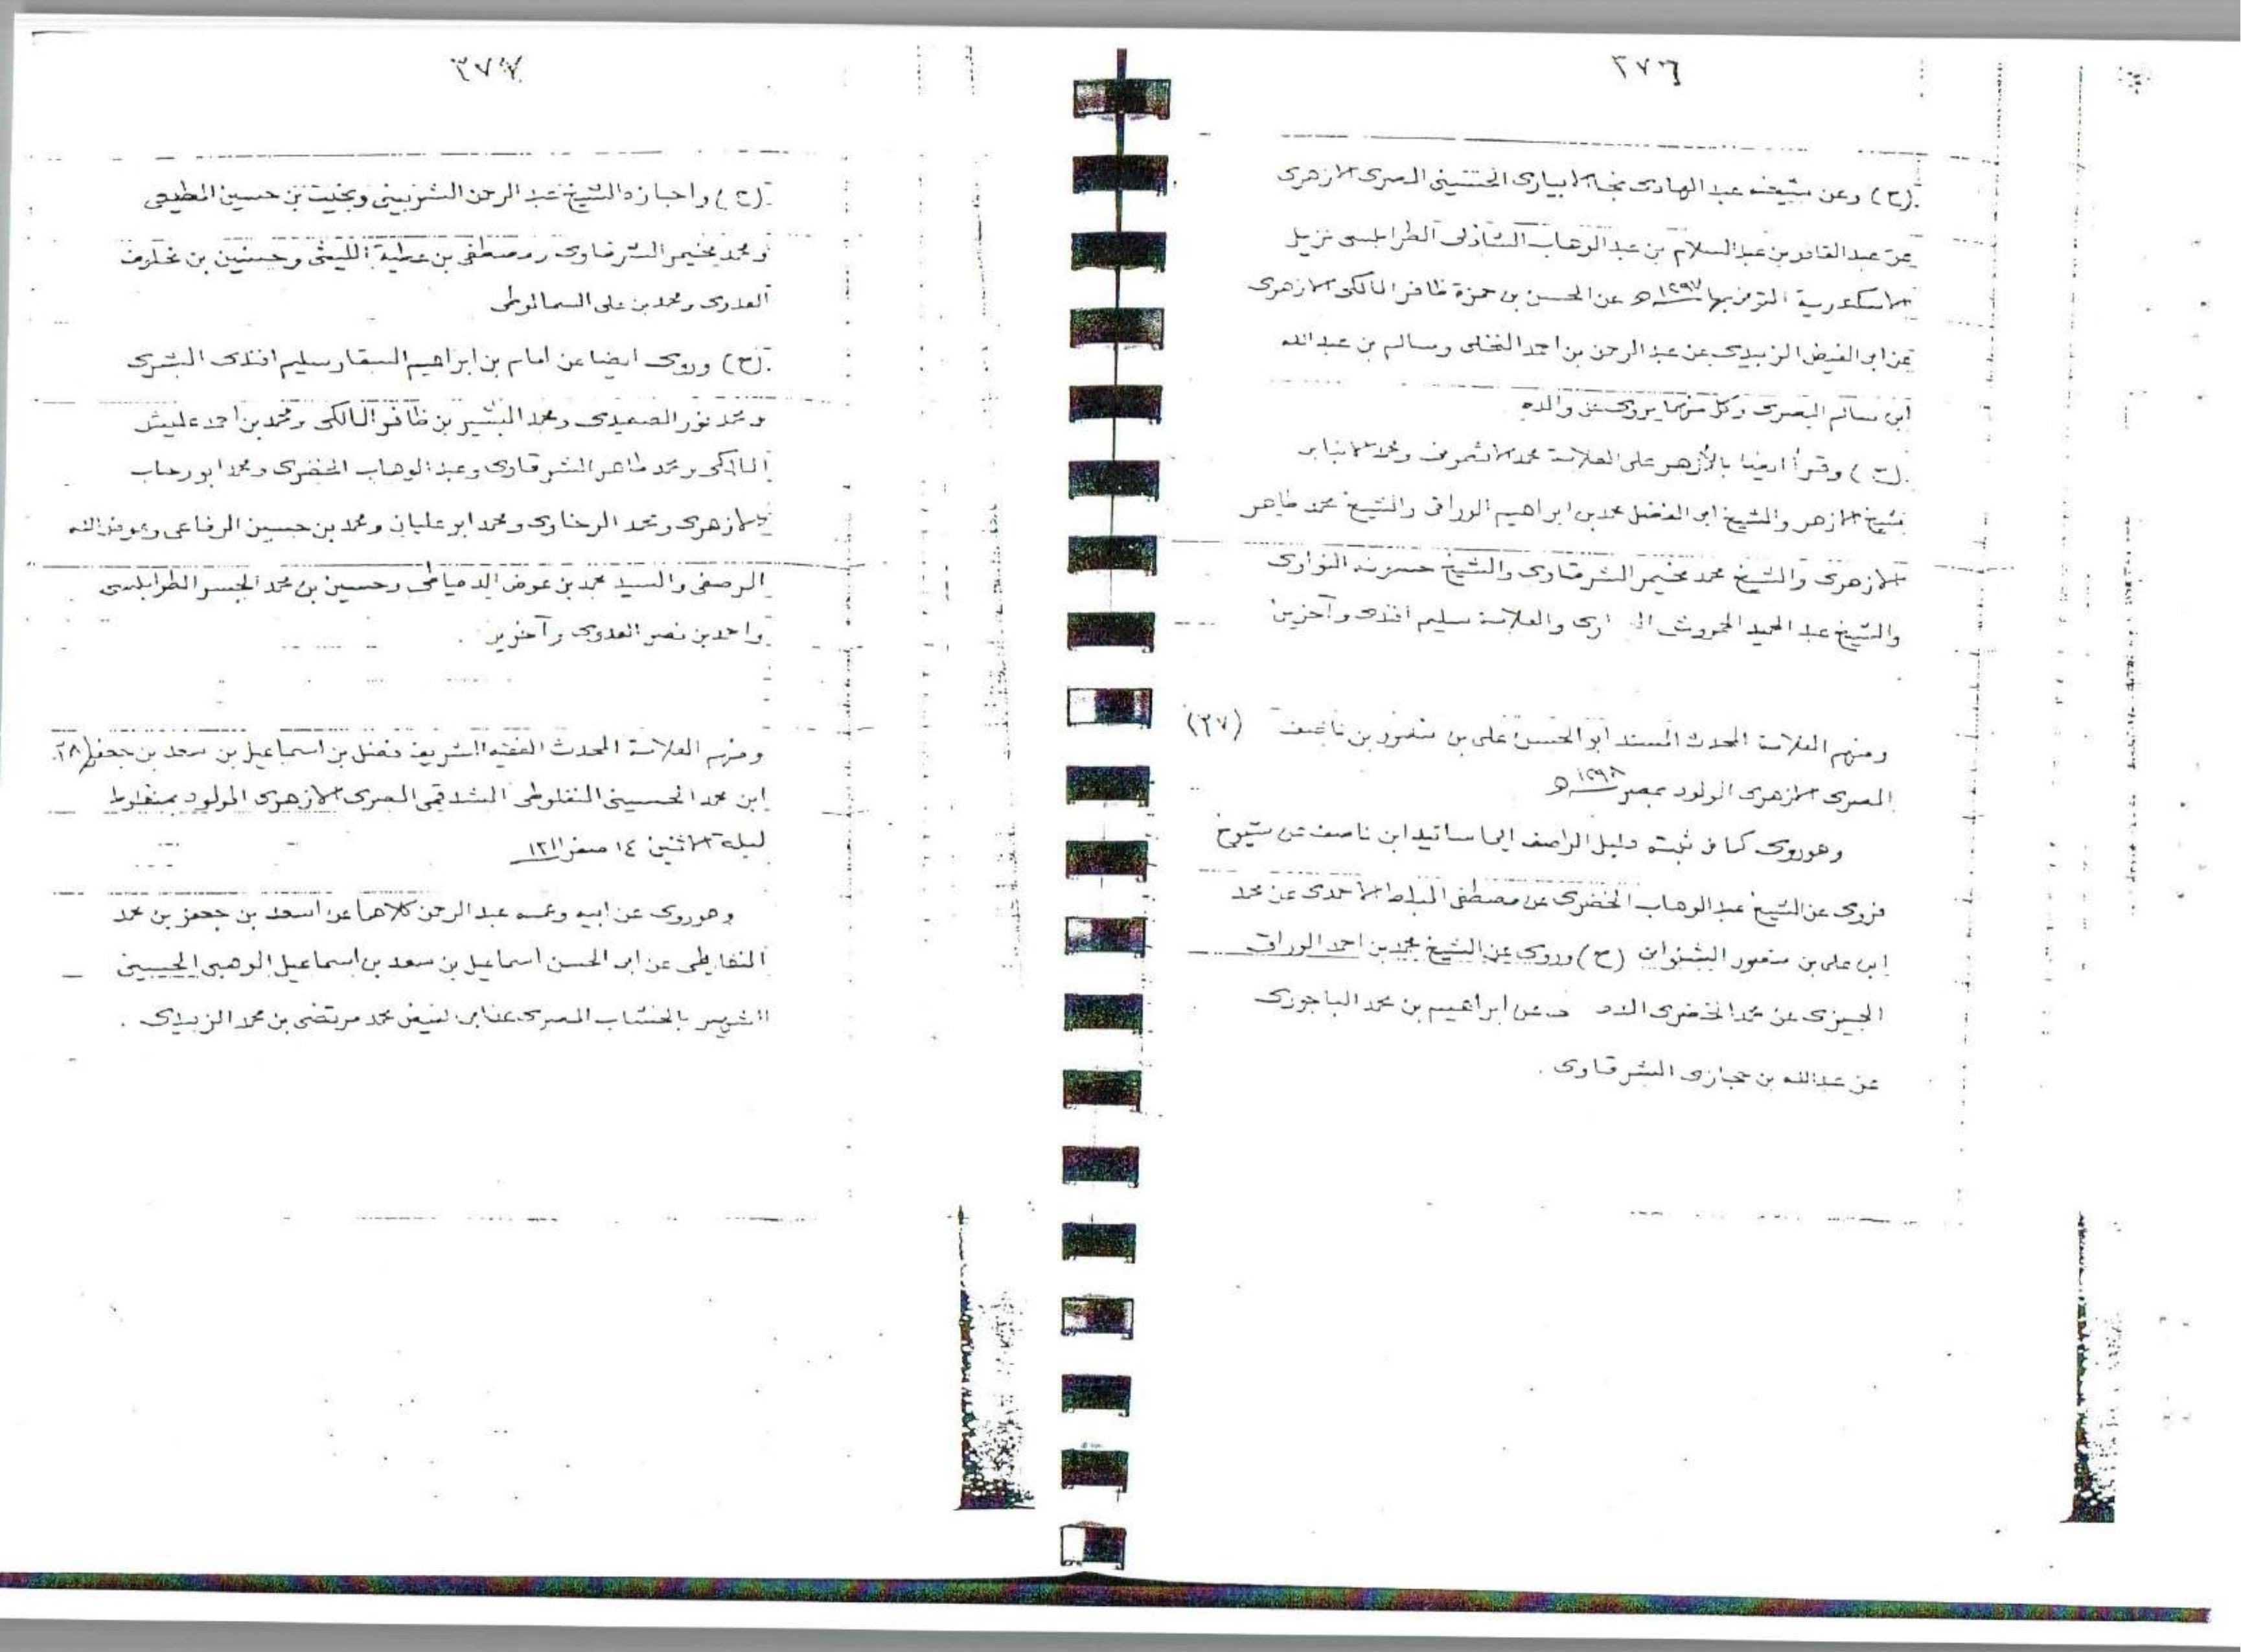 ٣٧٦
(ح) وعن شيخه عبد الهادى نجا الابيارى المصرى الازهرى
عن عبد القادر بن عبد السلام بن عبد الوهاب الشاذلى الطرابلسى نزيل
الاسكندرية المتوفى بها ١٢٩٧ هـ عن الحسن بن حمزة ظافر المالكى الازهرى
عن ابى الفيض الزبيدى عن عبد الرحمن بن احمد النخلى وسالم بن عبد الله
ابن سالم البصرى وكل منهما يروى عن والده
(ح) وقرأ ايضا بالأزهر على العلامة محمد الاشمونى ومحمد الانبابى
شيخ الازهر والشيخ ابى الفضل محمد بن ابراهيم الوراقى والشيخ محمد طاهر
الازهرى والشيخ محمد مخيمر الشرقاوى والشيخ حسونه النواوى
والشيخ عبد الحميد والعلامة سليم افندى وآخرين
ومنهم العلامة المحدث المسند ابو الحسن على بن منصور بن ناصف (٢٧)
المصرى الازهرى المولود بمصر ١٢٩٨ هـ
وهو روى كما فى ثبته دليل الراصف الى اسانيد ابن ناصف عن شيوخ
فروى عن الشيخ عبد الوهاب الخضرى عن مصطفى المبلط الاحمدى عن محمد
ابن على بن منصور الشنوانى (ح) وروى عن الشيخ محمد بن احمد الوراقى
الجيزى عن محمد الخضرى عن ابراهيم بن محمد الباجورى
عن عبد الله بن حجازى الشرقاوى .
٣٧٧
(ح) واجازه الشيخ عبد الرحمن الشربينى وبخيت بن حسين المطيعى
ومحمد مخيمر الشرقاوى ومصطفى بن عطية الليثى وحسنين بن مخلوف
العدوى ومحمد بن على السمالوطى
(ح) وروى ايضا عن امام بن ابراهيم السقا وسليم افندى البشرى
ومحمد نور الصعيدى ومحمد البشير بن ظافر المالكى ومحمد بن احمد عليش
المالكى ومحمد طاهر الشرقاوى وعبد الوهاب الخضرى ومحمد ابو رحاب
الازهرى ومحمد الرخاوى ومحمد ابو عليان ومحمد بن حسين الرفاعى وعوض الله
المرصفى والسيد محمد بن عوض الدمياطى وحسين بن محمد الجسر الطرابلسى
واحمد بن نصر العدوى وآخرين .
ومنهم العلامة المحدث الفقيه الشريف فضل بن اسماعيل بن سعد بن جعفر (٢٨)
ابن محمد الحسينى المنفلوطى المصرى الازهرى المولود بمنفلوط
ليلة الاثنين ١٤ صفر ١٢١١
وهو روى عن ابيه وعمه عبد الرحمن كلاهما عن اسعد بن جعفر بن محمد
عن ابى الحسن اسماعيل بن سعد بن اسماعيل الوهبى الحسينى
الشهير بالخشاب المصرى عن ابى الفيض محمد مرتضى بن محمد الزبيدى .